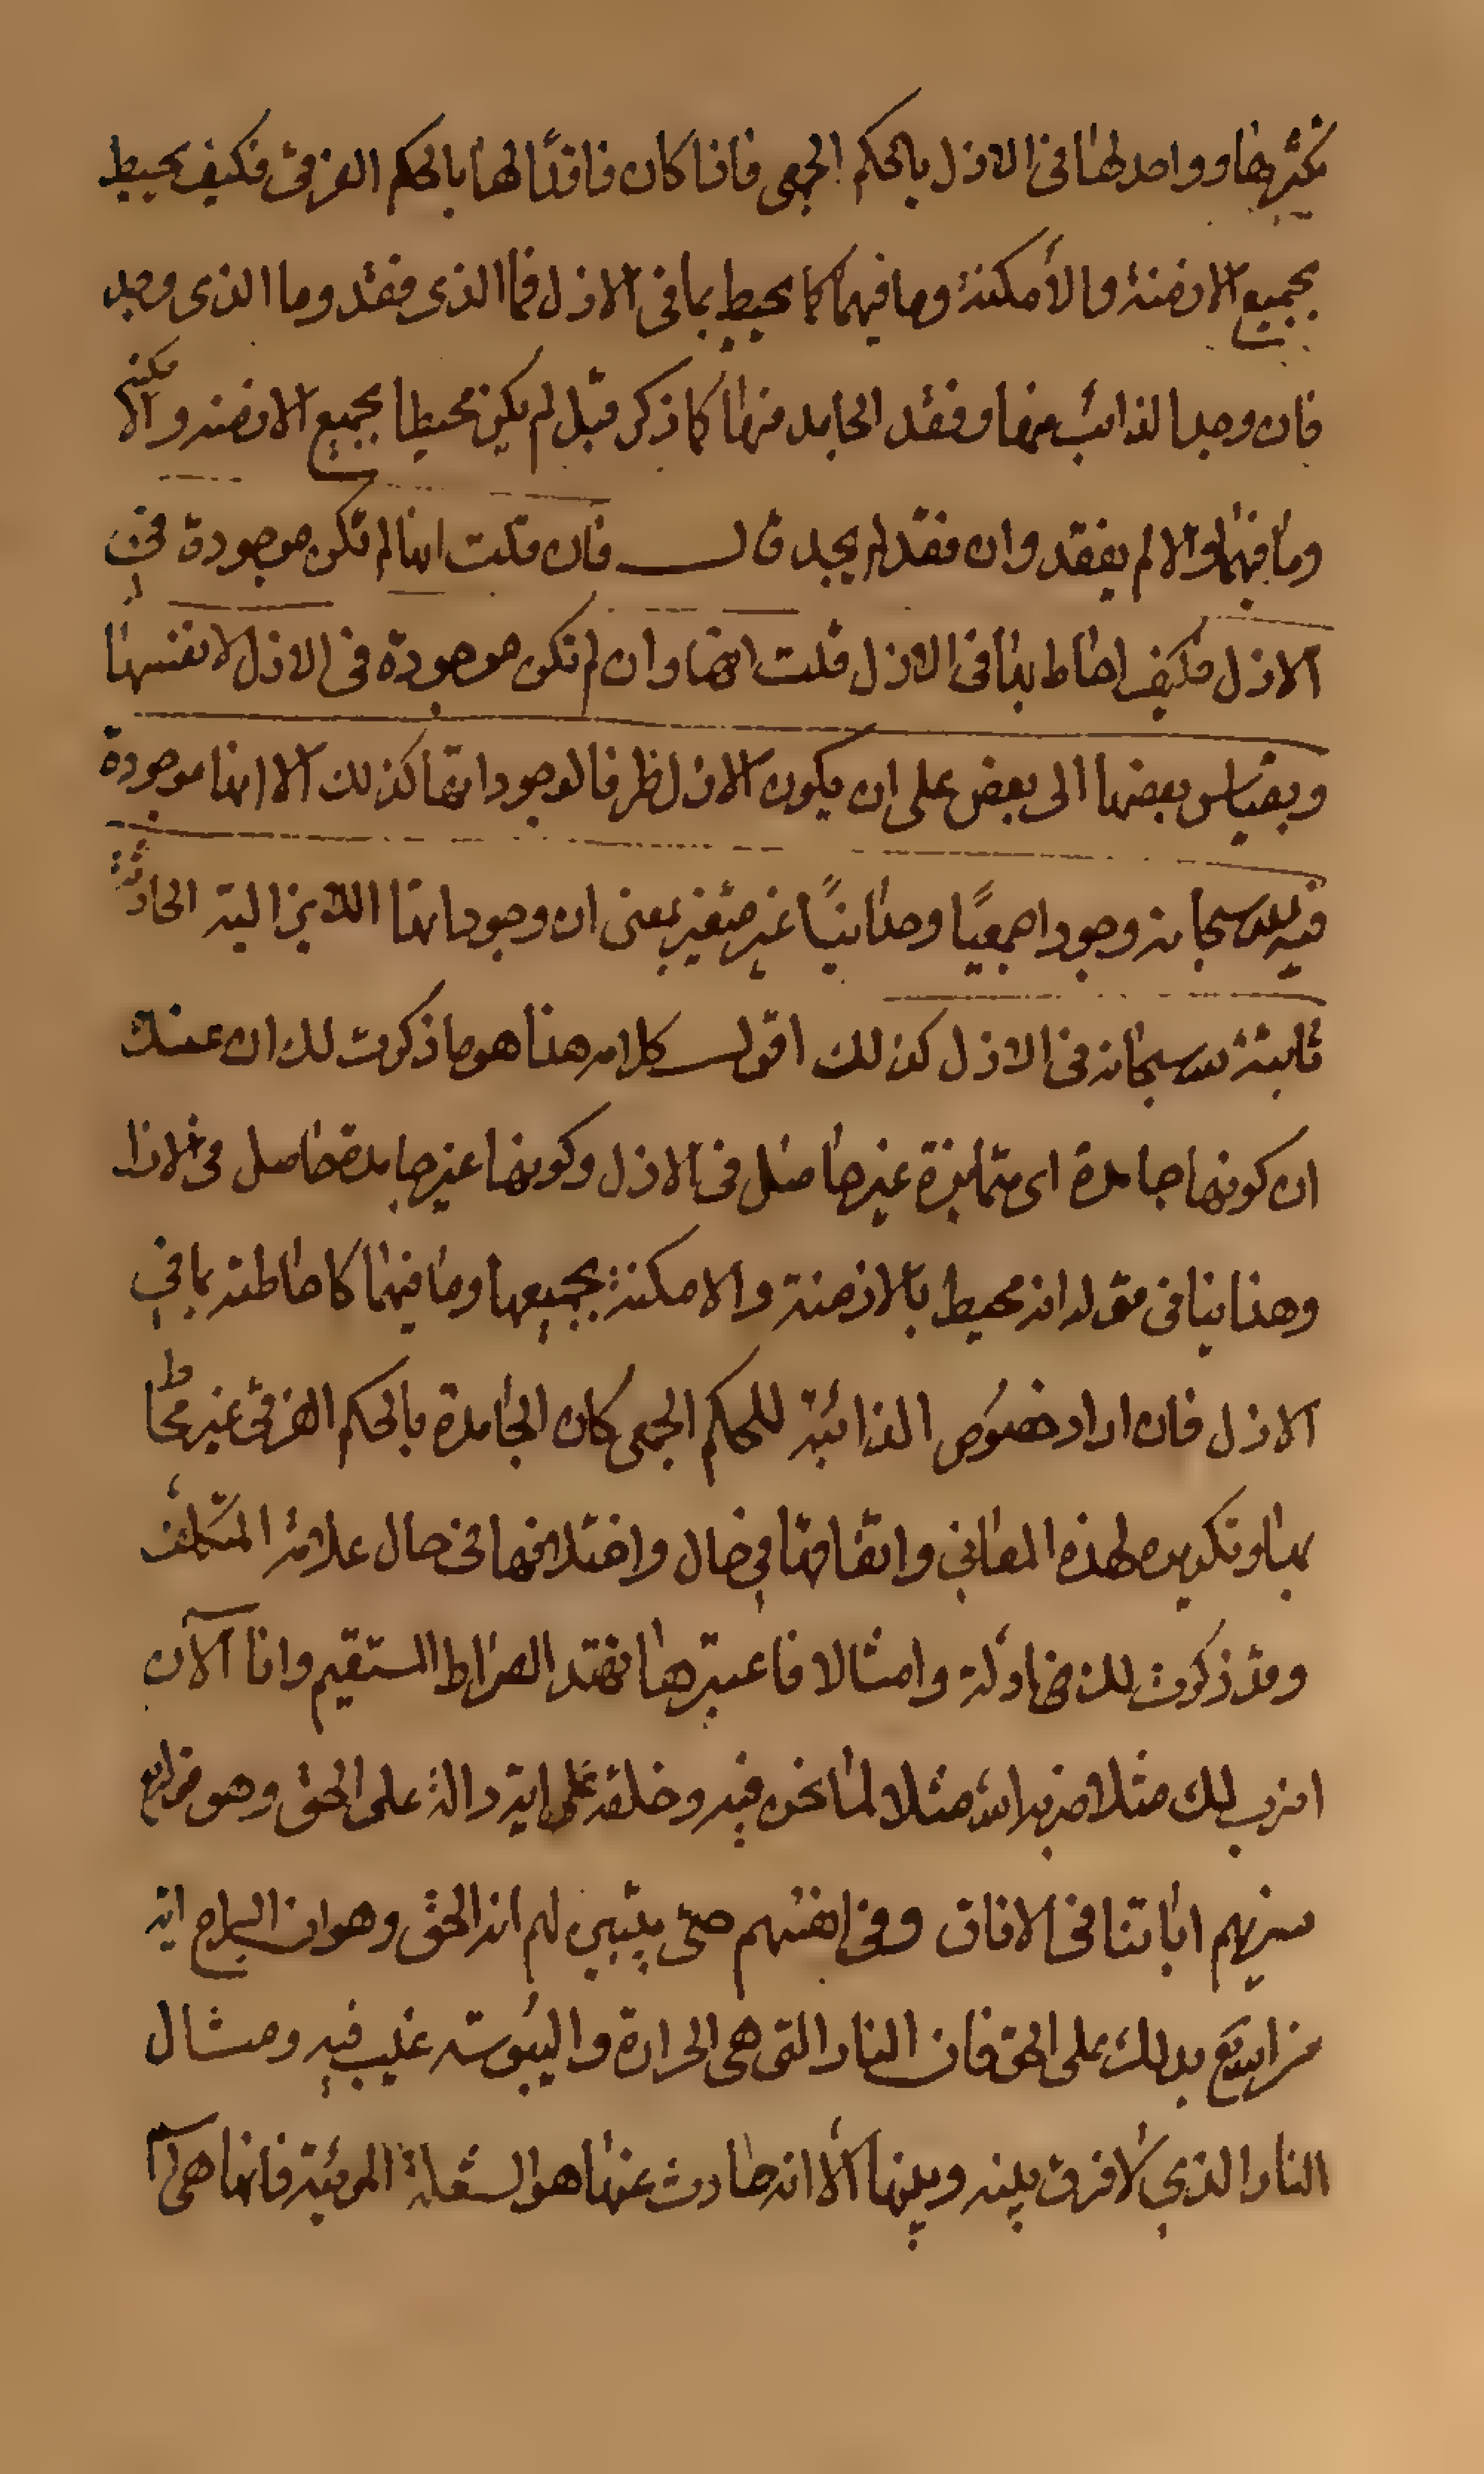 بكثرتها وواحد لها في الازل بالحكم الجمعي فاذا كان فاقدًا لها بالحكم الفرقي فكيف يحيط
بجميع الازمنة والأمكنة وما فيهما كما يحيط بما في الازل فما الذي فقد وما الذي وجد
فان وجد الذائب منها وفقد الجامد منها كما ذكر قبل لم يكن محيطا بجميع الازمنه والامكنه
وما فيهما والا لم يفقد وان فقد لم يجد قال فان قلت انها لم تكن موجودة في
الازل فكيف احاط بها في الازل قلت انها وان لم تكن موجودة في الازل لانفسها
وبقياس بعضها الى بعض على ان يكون الازل ظرفا لوجوداتها كذلك الا انها موجودة
فيه لله سبحانه وجودا جمعيًا وحدانيًا غير متغير بمعنى ان وجوداتها اللايزالية الحادثة
ثابتة لله سبحانه في الازل كذلك اقول كلامه هذا هو ما ذكرت لك ان عنده
ان كونها جامدة اي متمايزة غير حاصل في الازل وكونها غير جامدة حاصل في الازل
وهذا ينافي قوله انه محيط بالازمنة والامكنة بجميعها وما فيهما كاحاطته بما في
الازل فان اراد خصوص الذائبة للحكم الجمعي كان الجامدة بالحكم الفرقي غير محاط
بها وتكريره لهذه المعاني واتفاقها في حال واختلافها في حال علامة المتكلف
وقد ذكرت لك ادلة وامثالا فاعتبرها تهتد الصراط المستقيم وانا الآن
اضرب لك مثلا ضربه الله مثلا لما نحن فيه وخلقه على اية دالة على الحق وهو من اتبع
سنريهم اياتنا في الافاق وفي انفسهم حتى يتبين لهم انه الحق وهو ان السراج اية
من اتبع يدلك على الحق فان النار التي هي الحرارة واليبوسة غيب فيه ومثال
النار الذي لا فرق بينه وبينها الا انه حادث عنها هو الشعلة المرئية فانها هي